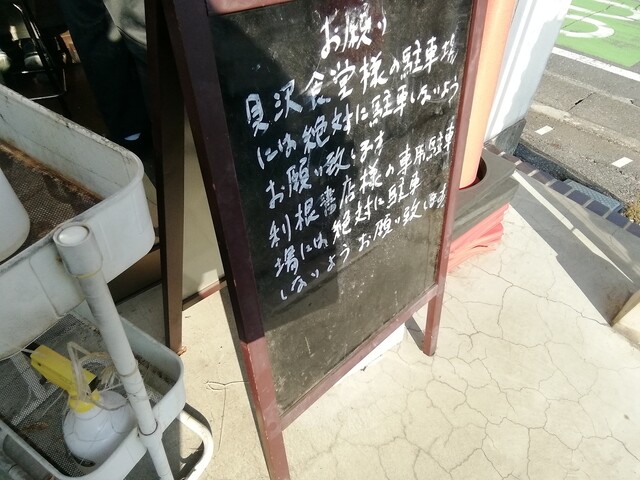 お願い
貝沢食堂様の駐車場
には絶対に駐車しないよう
お願い致します
利根書店様の専用駐車
場には絶対に駐車
しないようお願い致します